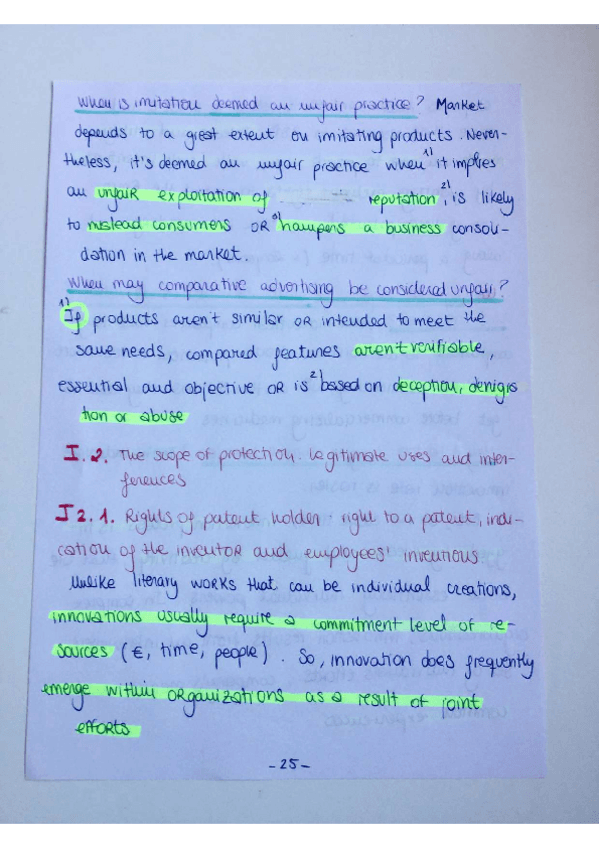 When is imitation deemed an unfair practice? Market
depends to a great extent on imitating products. Never-
theless, it's deemed an unfair practice when 1) it implies
an unfair exploitation of reputation, 2) is likely
to mislead consumers OR hampers a business consoli-
dation in the market.
When may comparative advertising be considered unfair?
1) If products aren't similar OR intended to meet the
same needs, compared features aren't verifiable,
essential and objective OR is 2) based on deception, denigra
tion or abuse
I.2. The scope of protection. Legitimate uses and inter-
ferences
I 2.1. Rights of patent holder right to a patent, indi-
cation of the inventor and employees' inventions
Unlike literary works that can be individual creations,
innovations usually require a commitment level of re-
sources (€, time, people). So, innovation does frequently
emerge within organizations as a result of joint
efforts
-25-